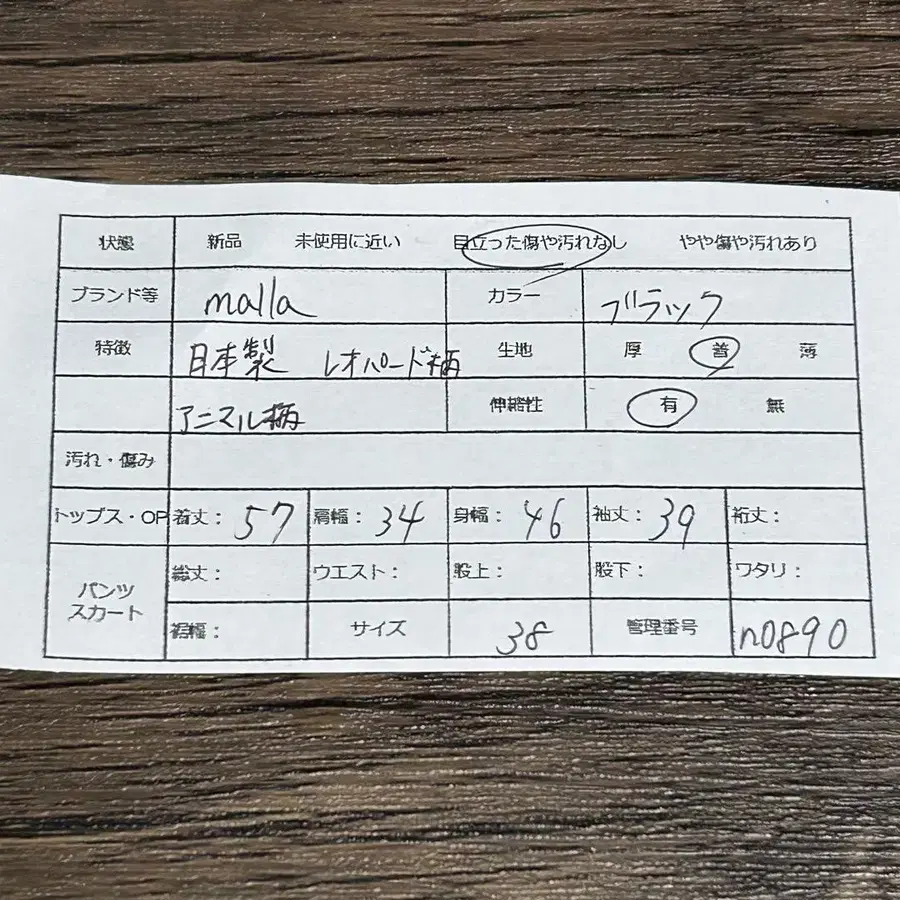 状態 新品 未使用に近い 目立った傷や汚れなし やや傷や汚れあり
ブランド等 malla カラー ブラック
特徴 日本製 レオパード柄 生地 厚 普 薄
アニマル柄 伸縮性 有 無
汚れ・傷み
トップス・OP 着丈： 57 肩幅： 34 身幅： 46 袖丈： 39 裄丈：
パンツ スカート 総丈： ウエスト： 股上： 股下： ワタリ：
裾幅： サイズ 38 管理番号 n0890